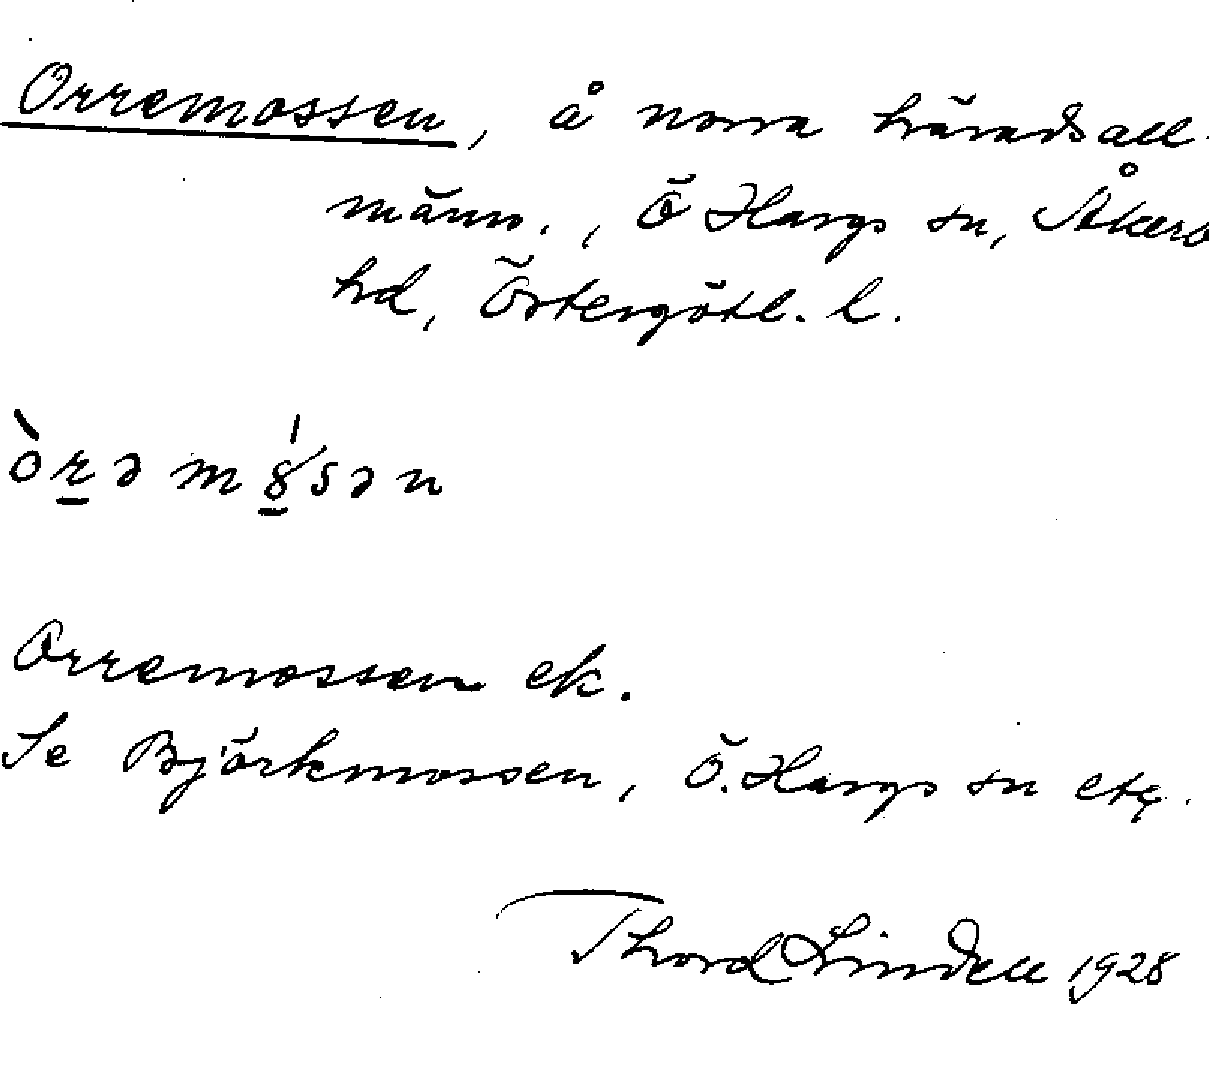 Orremossen, å norra häradsall-
männ., Ö Hargs sn, Åkers
hd, Östergötl. l.
òrəm8́sən
Orremossen ek.
Se Björkmossen, Ö. Hargs sn etc.
Thord Lindell 1928